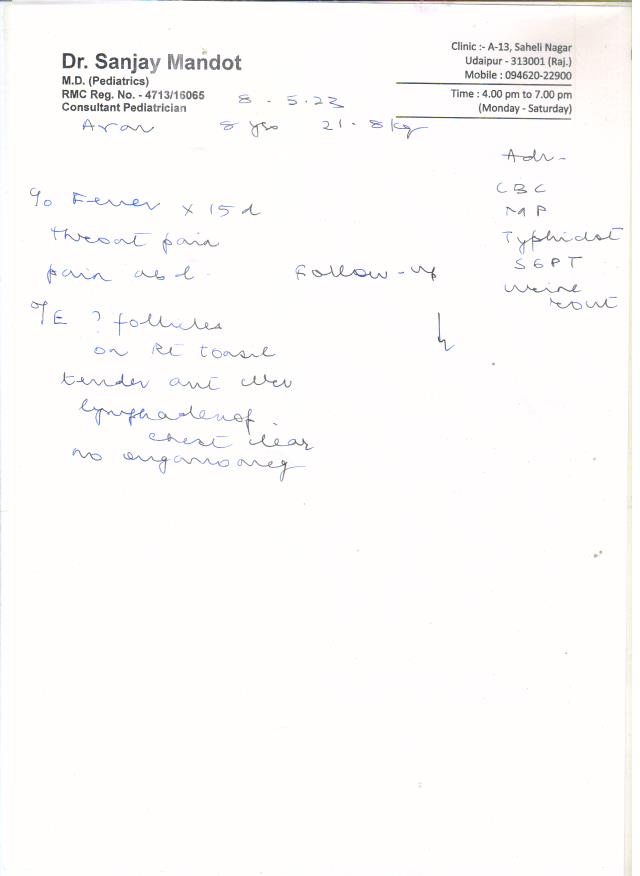 Dr. Sanjay Mandot
M.D. (Pediatrics)
RMC Reg. No. - 4713/16065
Consultant Pediatrician
Clinic :- A-13, Saheli Nagar
Udaipur - 313001 (Raj.)
Mobile : 094620-22900
Time : 4.00 pm to 7.00 pm
(Monday - Saturday)
8 . 5.23
8 yrs 21.8 kg
Adv -
CBC
MP
Typhidot
SGPT
Urine
rout
c/o Fever x 15 d
throat pain
pain abd.
Follow-up
O/E ? follicles
on Rt tonsil
tender ant
lymphadenop.
chest clear
no organomeg